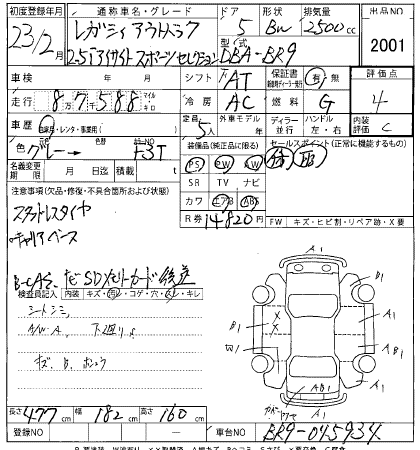 初度登録年月 通称車名・グレード ドア 形状 排気量 出品NO
23年2月 レガシィアウトバック 5 BW 2500cc 2001
2.5iアイサイトスポーツセレクション 型式 DBA-BR9
車検 年 月 シフト AT 保証書 有 無 評価点
走行 87588 マイル キロ 冷房 AC 燃料 G 4
車歴 自家用・レンタ・事業用( ) 定員 5人 外車モデル 年 ディーラー 並行 ハンドル 左・右 内装評価 C
色 グレー→ 色替 カラーNO 装備品(純正品に限る) セールスポイント(正常に機能するもの)
名義変更期限 月 日 積載 t PS PW AW
注意事項(欠品・修復・不具合箇所および状態) SR TV ナビ
スタットレスタイヤ カワ エアB ABS
キャリアベース R券 14820円 FW キズ・ヒビ割・リペア跡・X要
B-CAS、ナビSDメモリーカード後送
検査員記入 内装 キズ・汚レ・コゲ・穴・スレ・キレ
シートシミ
A/W A、下廻りS
長さ 477cm 幅 182cm 高さ 160cm
登録NO 車台NO BR9-045934
A1
B1
A1
B1
W1
A1
A1
AB1
A1